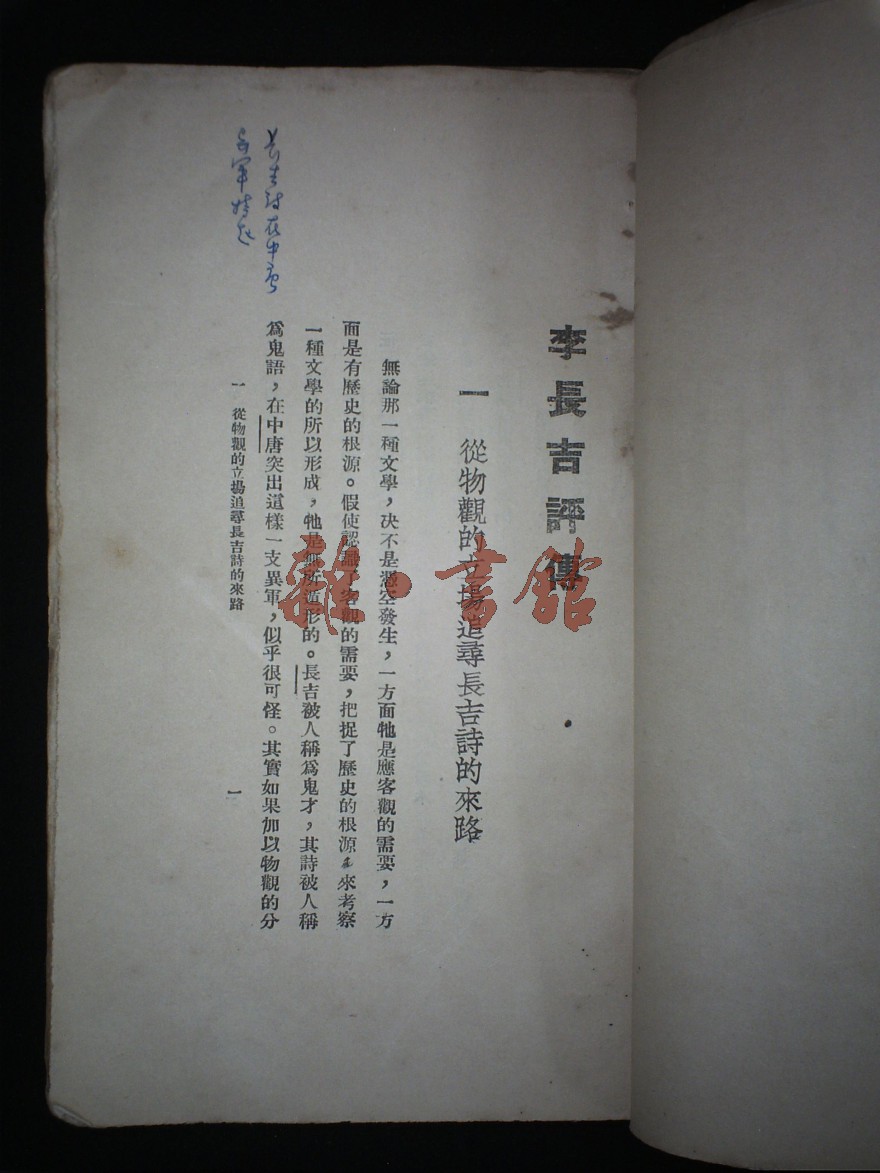 李長吉評傳
一 從物觀的立場追尋長吉詩的來路
無論那一種文學，決不是憑空發生，一方面牠是應客觀的需要，一方
面是有歷史的根源。假使認識了客觀的需要，把捉了歷史的根源來考察
一種文學的所以形成，牠是無所遁形的。長吉被人稱爲鬼才，其詩被人稱
爲鬼語，在中唐突出這樣一支異軍，似乎很可怪。其實如果加以物觀的分
一 從物觀的立場追尋長吉詩的來路
一
長吉詩在中唐
異軍特起
雜·書館